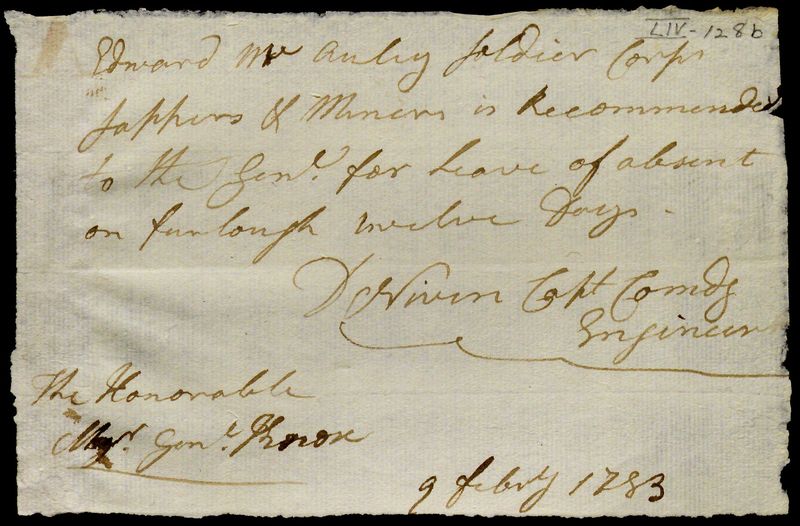 LIV-128b
Edward Mc Auley Soldier Corps
Sappers & Miners is Recommended
to the Genl. for Leave of absent
on furlough twelve Days.
D Niven Capt Comdg
Engineer
The Honorable
Majr. Genl. Knox
9 Febry 1783